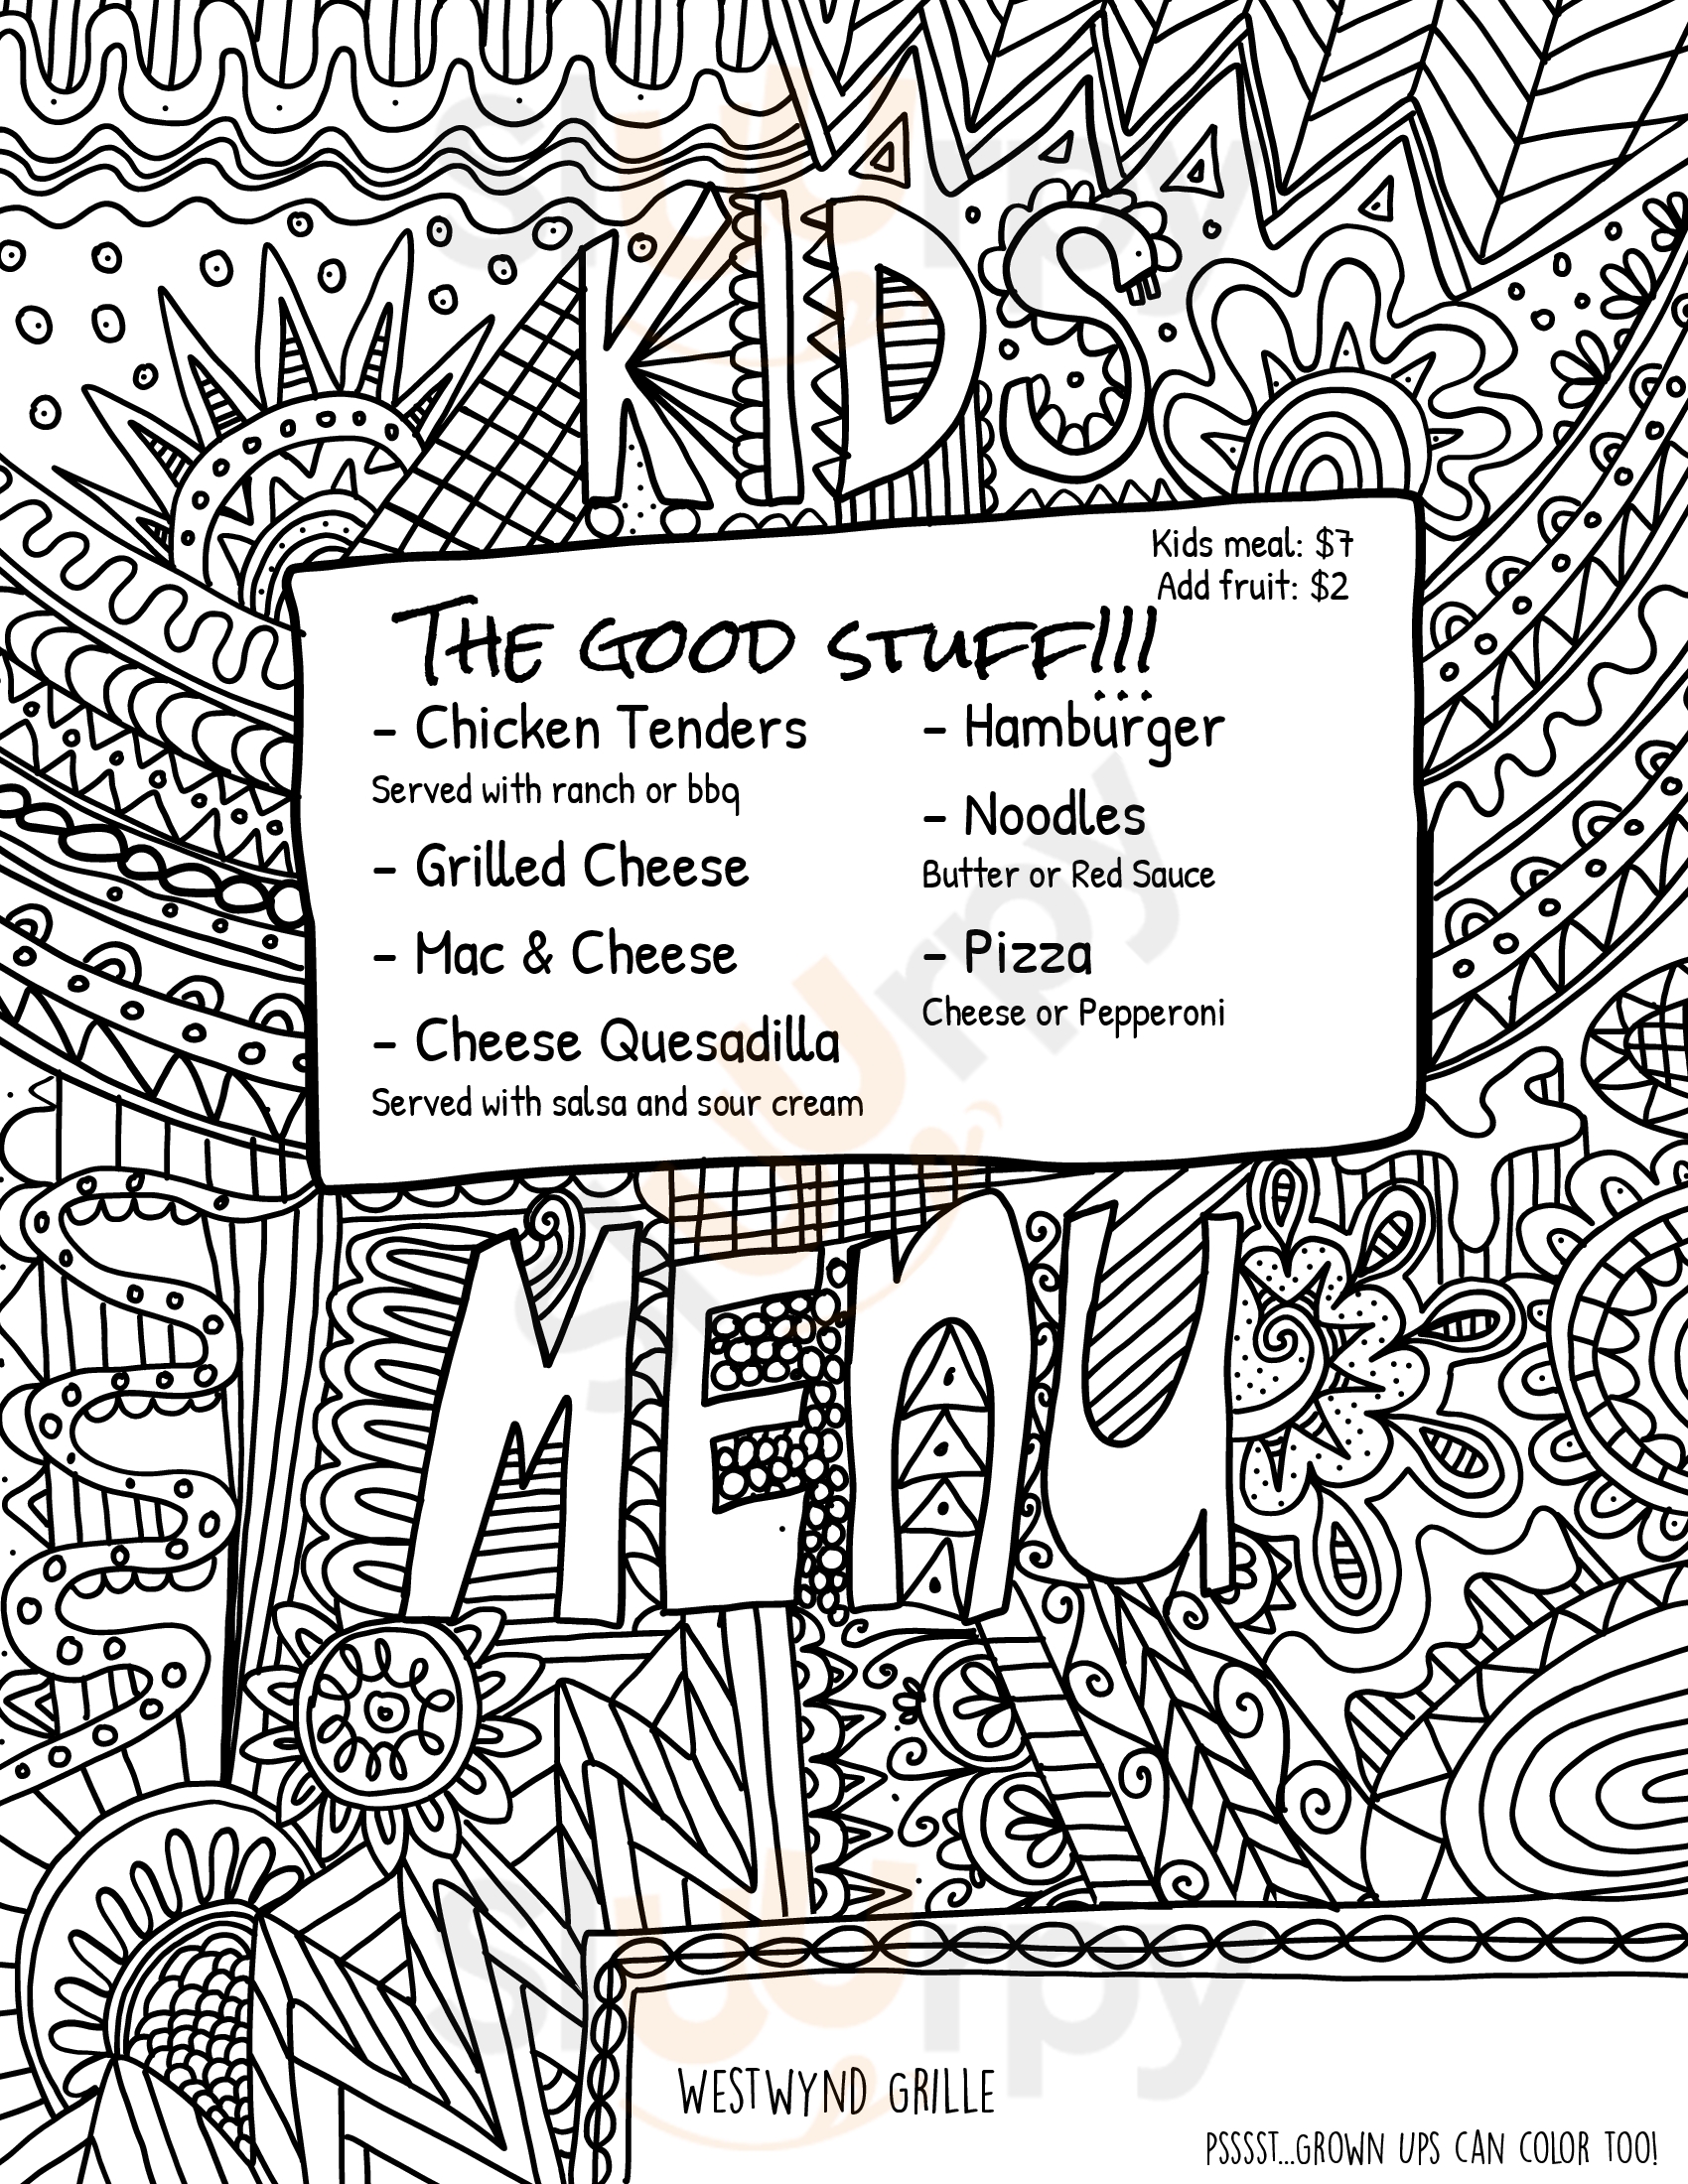 Slurpy
KIDS
Kids meal: $7
Add fruit: $2
THE GOOD STUFF!!!
- Chicken Tenders
Served with ranch or bbq
- Grilled Cheese
- Mac & Cheese
- Cheese Quesadilla
Served with salsa and sour cream
- Hamburger
- Noodles
Butter or Red Sauce
- Pizza
Cheese or Pepperoni
Slurpy
MENU
Slurpy
WESTWYND GRILLE
PSSSST...GROWN UPS CAN COLOR TOO!